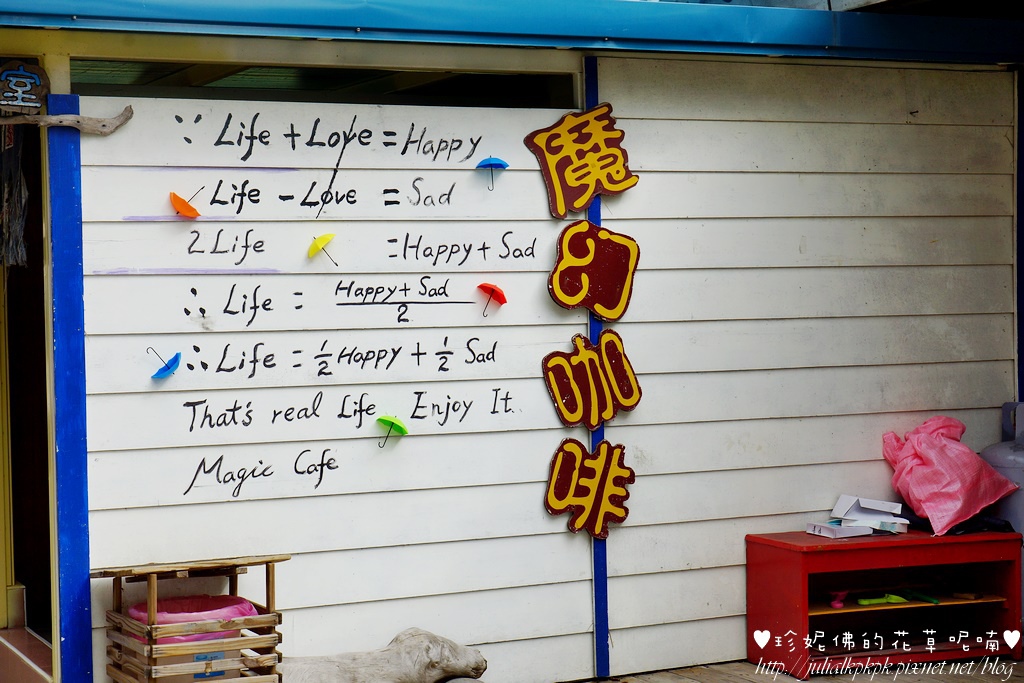 室
∵ Life + Love = Happy
Life - Love = Sad
2 Life = Happy + Sad
∴ Life = Happy + Sad / 2
∴ Life = 1/2 Happy + 1/2 Sad
That's real Life. Enjoy It.
Magic Cafe
魔幻咖啡
♥珍妮佛的花草呢喃♥
http://julialkpkpk.pixnet.net/blog